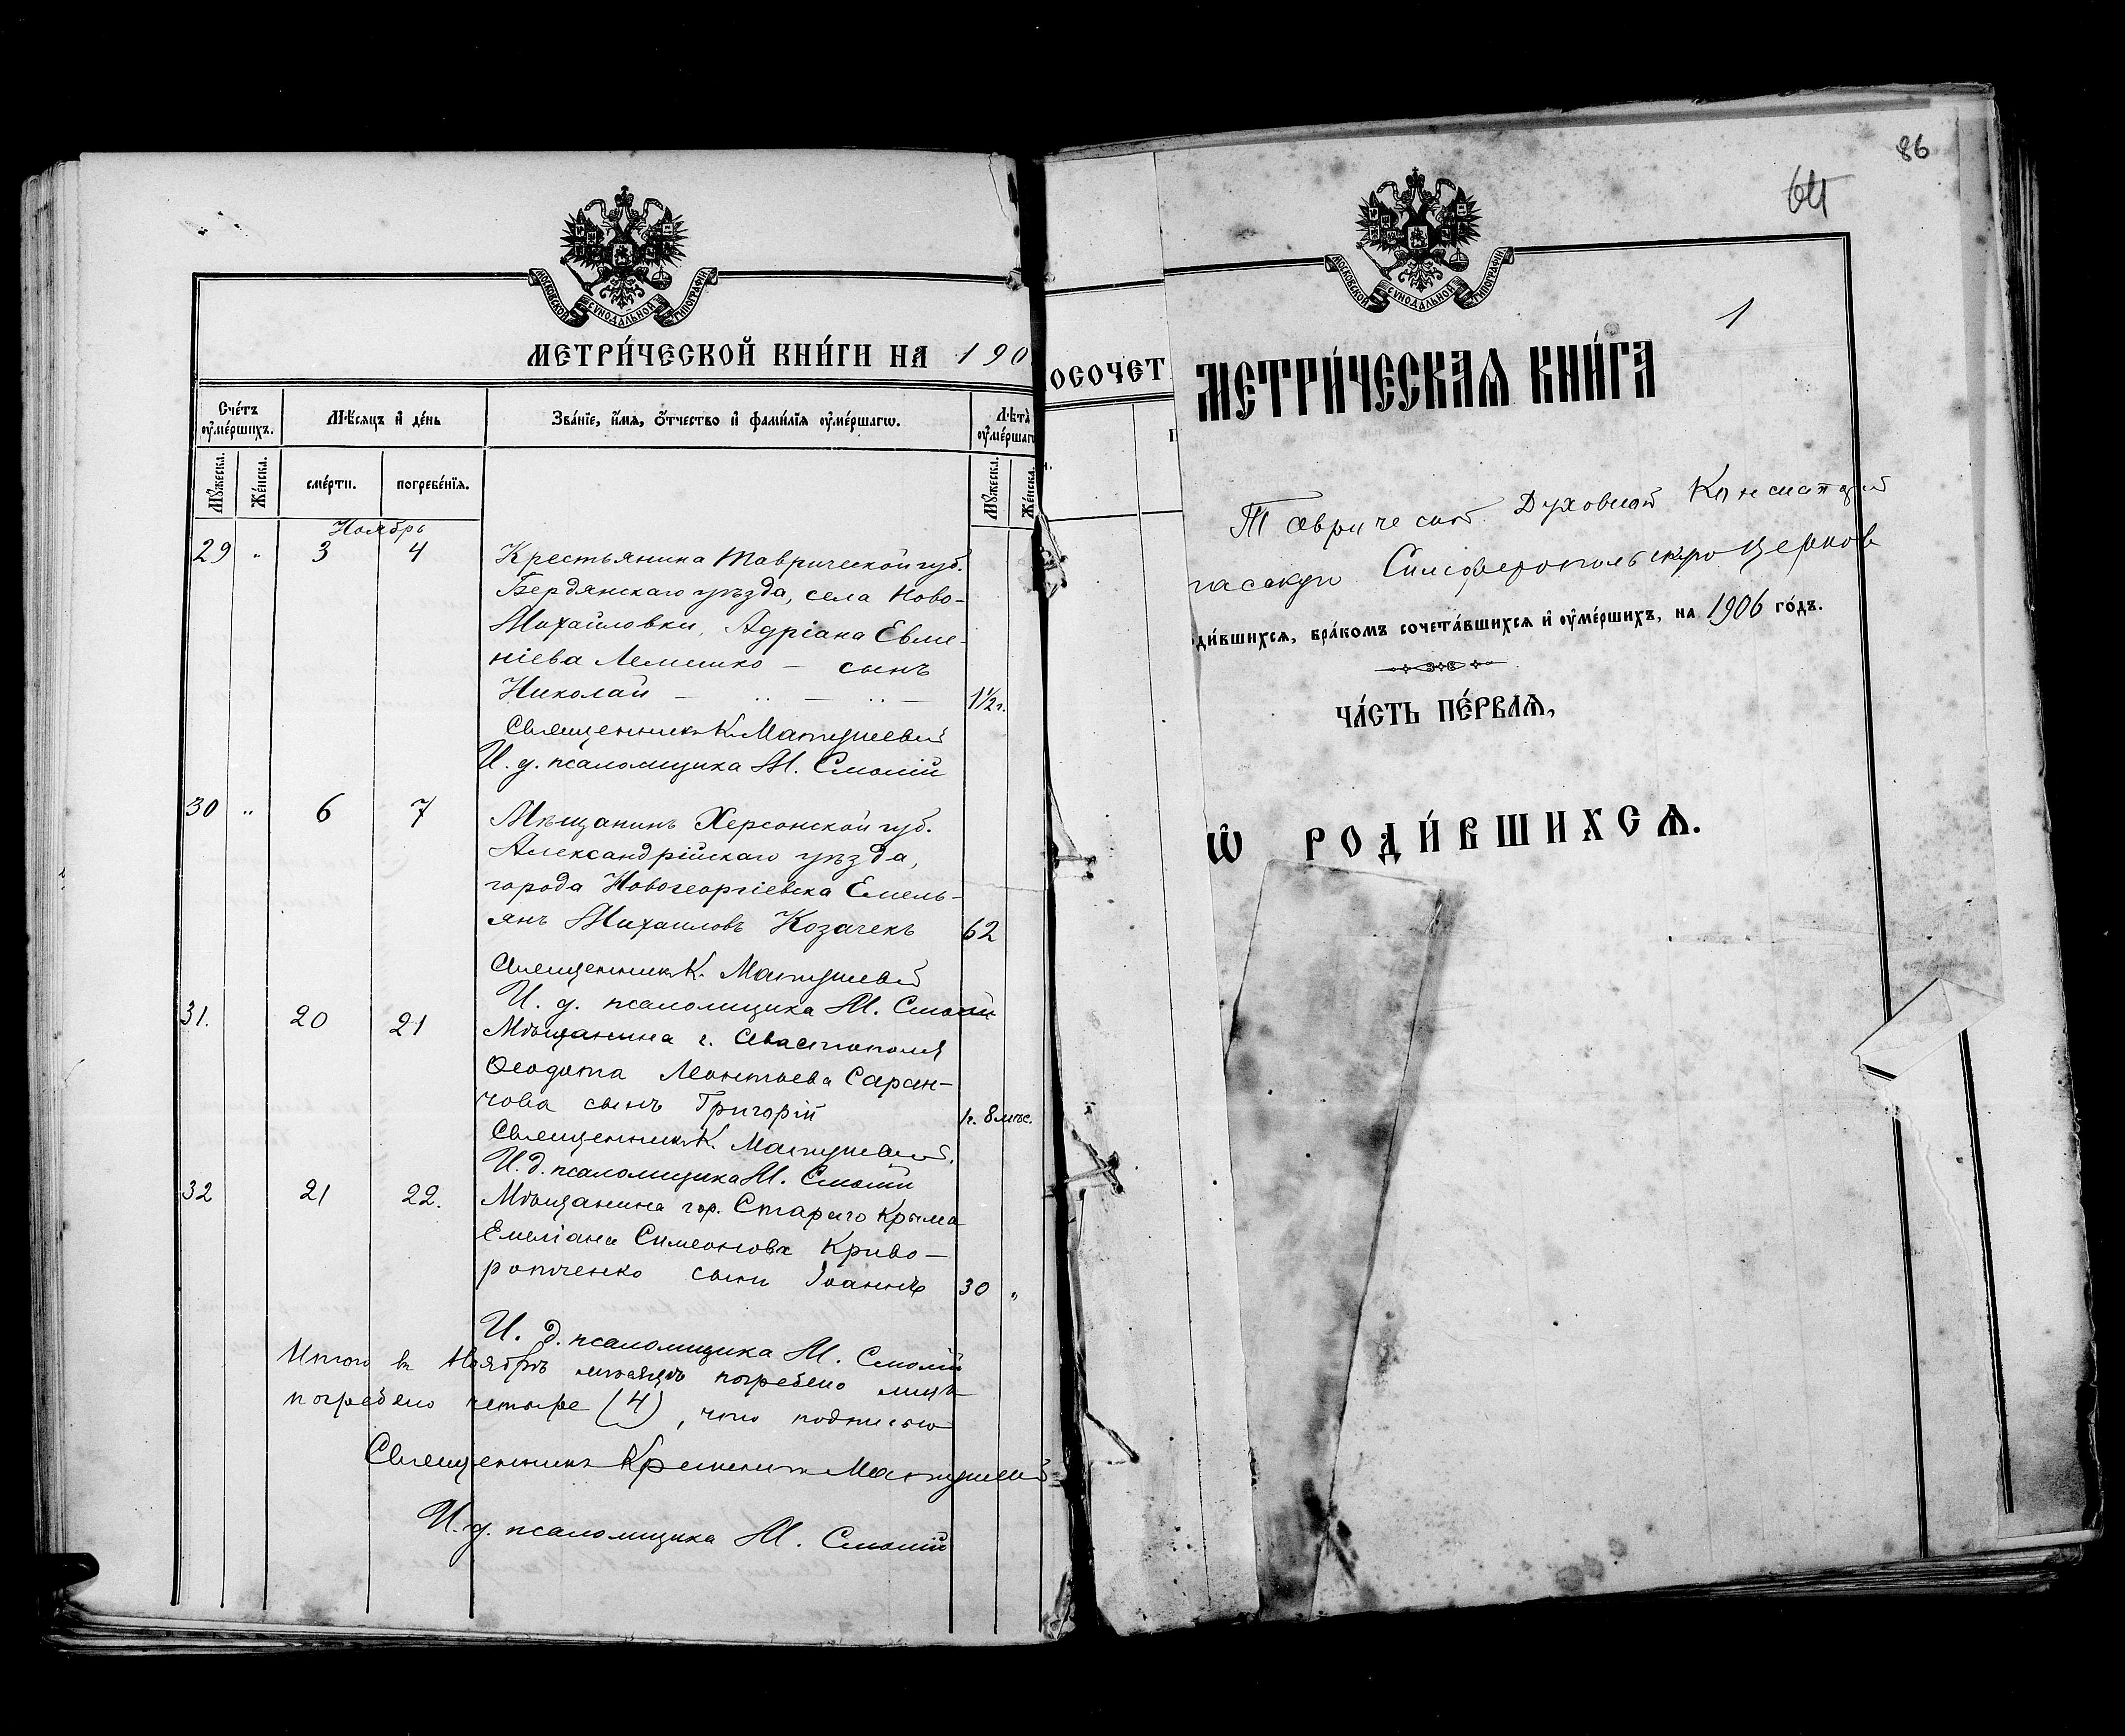 МОСКОВСКОЙ СѴНОДАЛЬНОЙ ТИПОГРАФІИ
МЕТРИ́ЧЕСКОЙ КНИ́ГИ НА 190
Сче́тъ оу҆ме́ршихъ.
Мѣ́сяцъ и҆ де́нь
Зва́нїе, и҆́мѧ, ѻ҆́тчество и҆ фами́лїѧ оу҆ме́ршагѡ.
Лѣта̀ оу҆ме́ршаг
Мꙋ́жеска.
Же́нска.
сме́рти.
погребе́нїѧ.
Мꙋ́жеска.
Же́нска.
Ноябрь
29 „ 3 4 Крестьянина Таврической губ.
Бердянскаго уѣзда, села Ново-
Михайловки, Адріана Евме-
ніева Лемешко — сынъ
Николай — 1½ г.
Священникъ К. Матушевій
И. д. псаломщика М. Смолій
30 „ 6 7 Мѣщанинъ Херсонской губ.
Александрійскаго уѣзда,
города Новогеоргіевска Емель-
янъ Михаиловъ Козачекъ 62
Священникъ К. Матушевій
И. д. псаломщика М. Смолій
31. 20 21 Мѣщанина г. Севастополя
Ѳеодота Леонтьева Саран-
чова сынъ Григорій 1г. 8 мѣс.
Священникъ К. Матушевій.
И. д. псаломщика М. Смолій
32 21 22. Мѣщанина гор. Стараго Крыма
Емеліана Симеонова Криво-
ротченко сынъ Іоаннъ 30 „
И. д. псаломщика М. Смолій
Итого въ Ноябрѣ мѣсяцѣ погребено лицъ
погребено четыре (4), что подписью
Священникъ Матушевій
И. д. псаломщика М. Смолій
ОСОЧЕТ
86
64
1
МОСКОВСКОЙ СѴНОДАЛЬНОЙ ТИПОГРАФІИ
МЕТРИ́ЧЕСКАѦ КНИ́ГА
Таврической Духовной Консисторіи
Симферопольскую Церковь
ди́вшихсѧ, бра́комъ сочета́вшихсѧ и҆ оу҆ме́ршихъ, на 1906 го́дъ.
ЧА́СТЬ ПЕ́РВАѦ,
Ѡ҆ РОДИ́ВШИХСѦ.